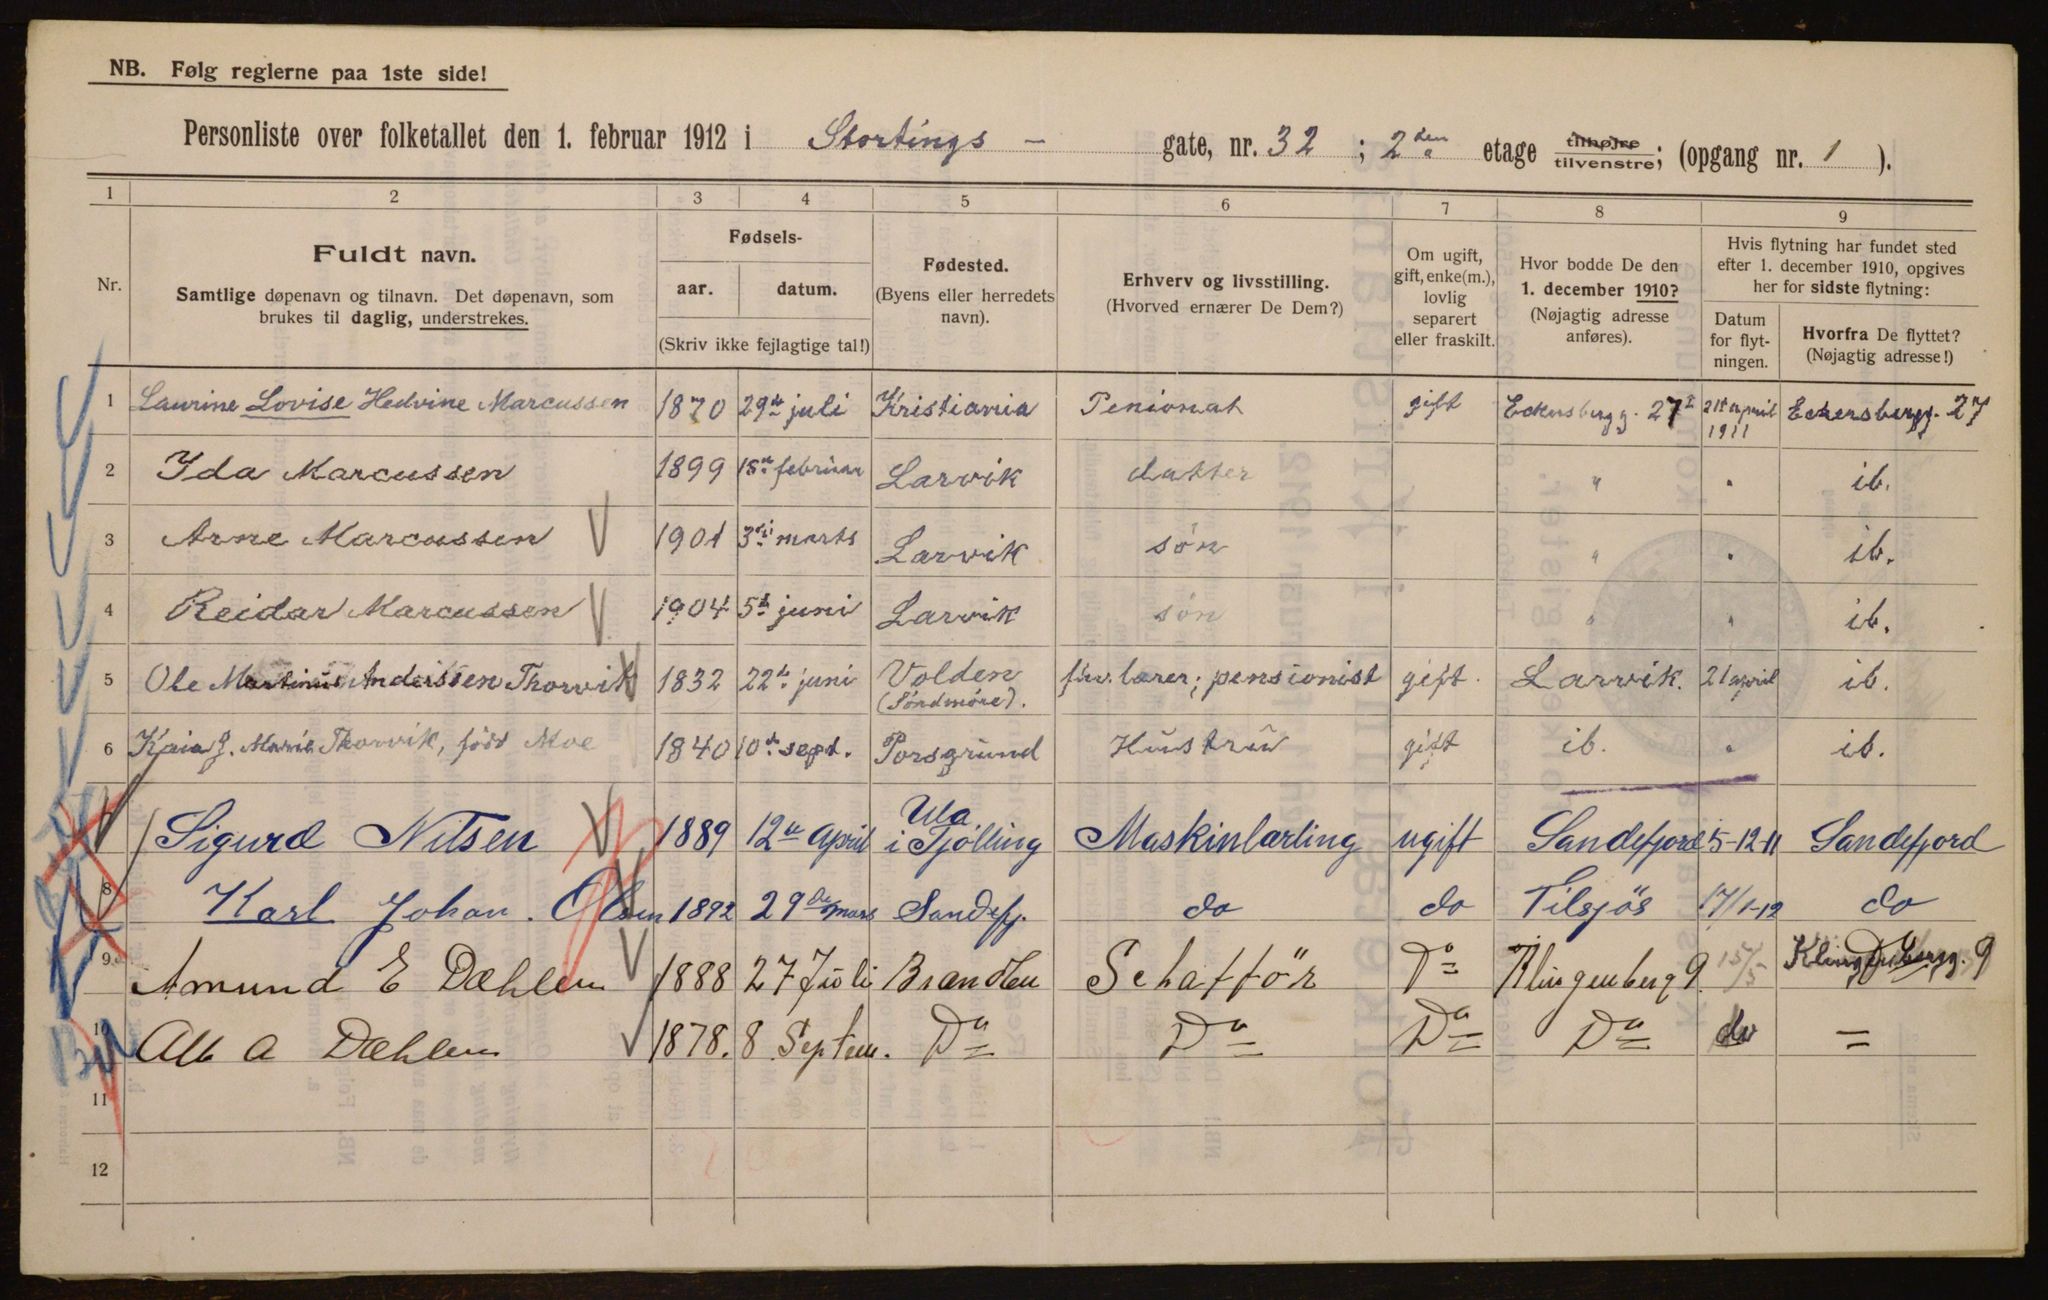 NB. Følg reglerne paa 1ste side!
Personliste over folketallet den 1. februar 1912 i Stortings - gate, nr. 32 ; 2den etage tilhøjre tilvenstre; (opgang nr. 1 ).
1 2 3 4 5 6 7 8 9
Nr.
Fuldt navn.
Samtlige døpenavn og tilnavn. Det døpenavn, som
brukes til daglig, understrekes.
Fødsels-
aar. datum.
(Skriv ikke fejlagtige tal!)
Fødested.
(Byens eller herredets
navn).
Erhverv og livsstilling.
(Hvorved ernærer De Dem?)
Om ugift,
gift, enke(m.),
lovlig
separert
eller fraskilt.
Hvor bodde De den
1. december 1910?
(Nøjagtig adresse
anføres).
Hvis flytning har fundet sted
efter 1. december 1910, opgives
her for sidste flytning:
Datum
for flyt-
ningen.
Hvorfra De flyttet?
(Nøjagtig adresse!)
1 Laurine Lovise Hedvine Marcussen 1870 29de juli Kristiania Penionat gift Eckersbergg. 27 I 21de april 1911 Eckersbergg. 27
2 Ida Marcussen 1899 15de februar Larvik datter " " ib.
3 Arne Marcussen 1901 3di marts Larvik søn " " ib.
4 Reidar Marcussen 1904 5te juni Larvik søn " " ib.
5 Ole Martinus Anderssen Thorvik 1832 22de juni Volden (Söndmöre). fhv. lærer; pensionist gift. Larvik. 21 april ib.
6 Kaia J. Marie Thorvik, född Moe 1840 10de sept. Porsgrund Hustru gift ib. " ib.
7 Sigurd Nilsen 1889 12te april Ula i Tjölling Maskinlærling ugift Sandefjord 5-12-11 Sandefjord
8 Karl Johan Olsen 1892 29de mars Sandefj. do do Tilsjös 17/1-12 do
9 Amund E Dæhlen 1888 27 Juli Brandbu Schafför Do Klingenberg 9. 15/5 Klingenbergg. 9
10 A Dæhlen 1878. 8 Septem. Do Do Do Do do =
11
12